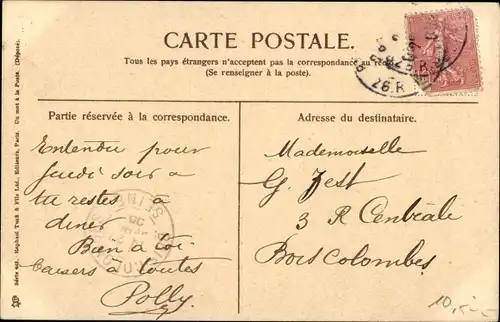 CARTE POSTALE.
Tous les pays étrangers n'acceptent pas la correspondance au recto
(Se renseigner à la poste).
Partie réservée à la correspondance.
Entendu pour
Jeudi soir
tu restes à
diner
Bien à toi
baisers à toutes
Polly.
Adresse du destinataire.
Mademoiselle
G. Jest
3 R Centrale
Bois Colombes
Raphael Tuck & Fils Ltd., Editeurs, Paris. Un mot à la Poste. (Déposé).